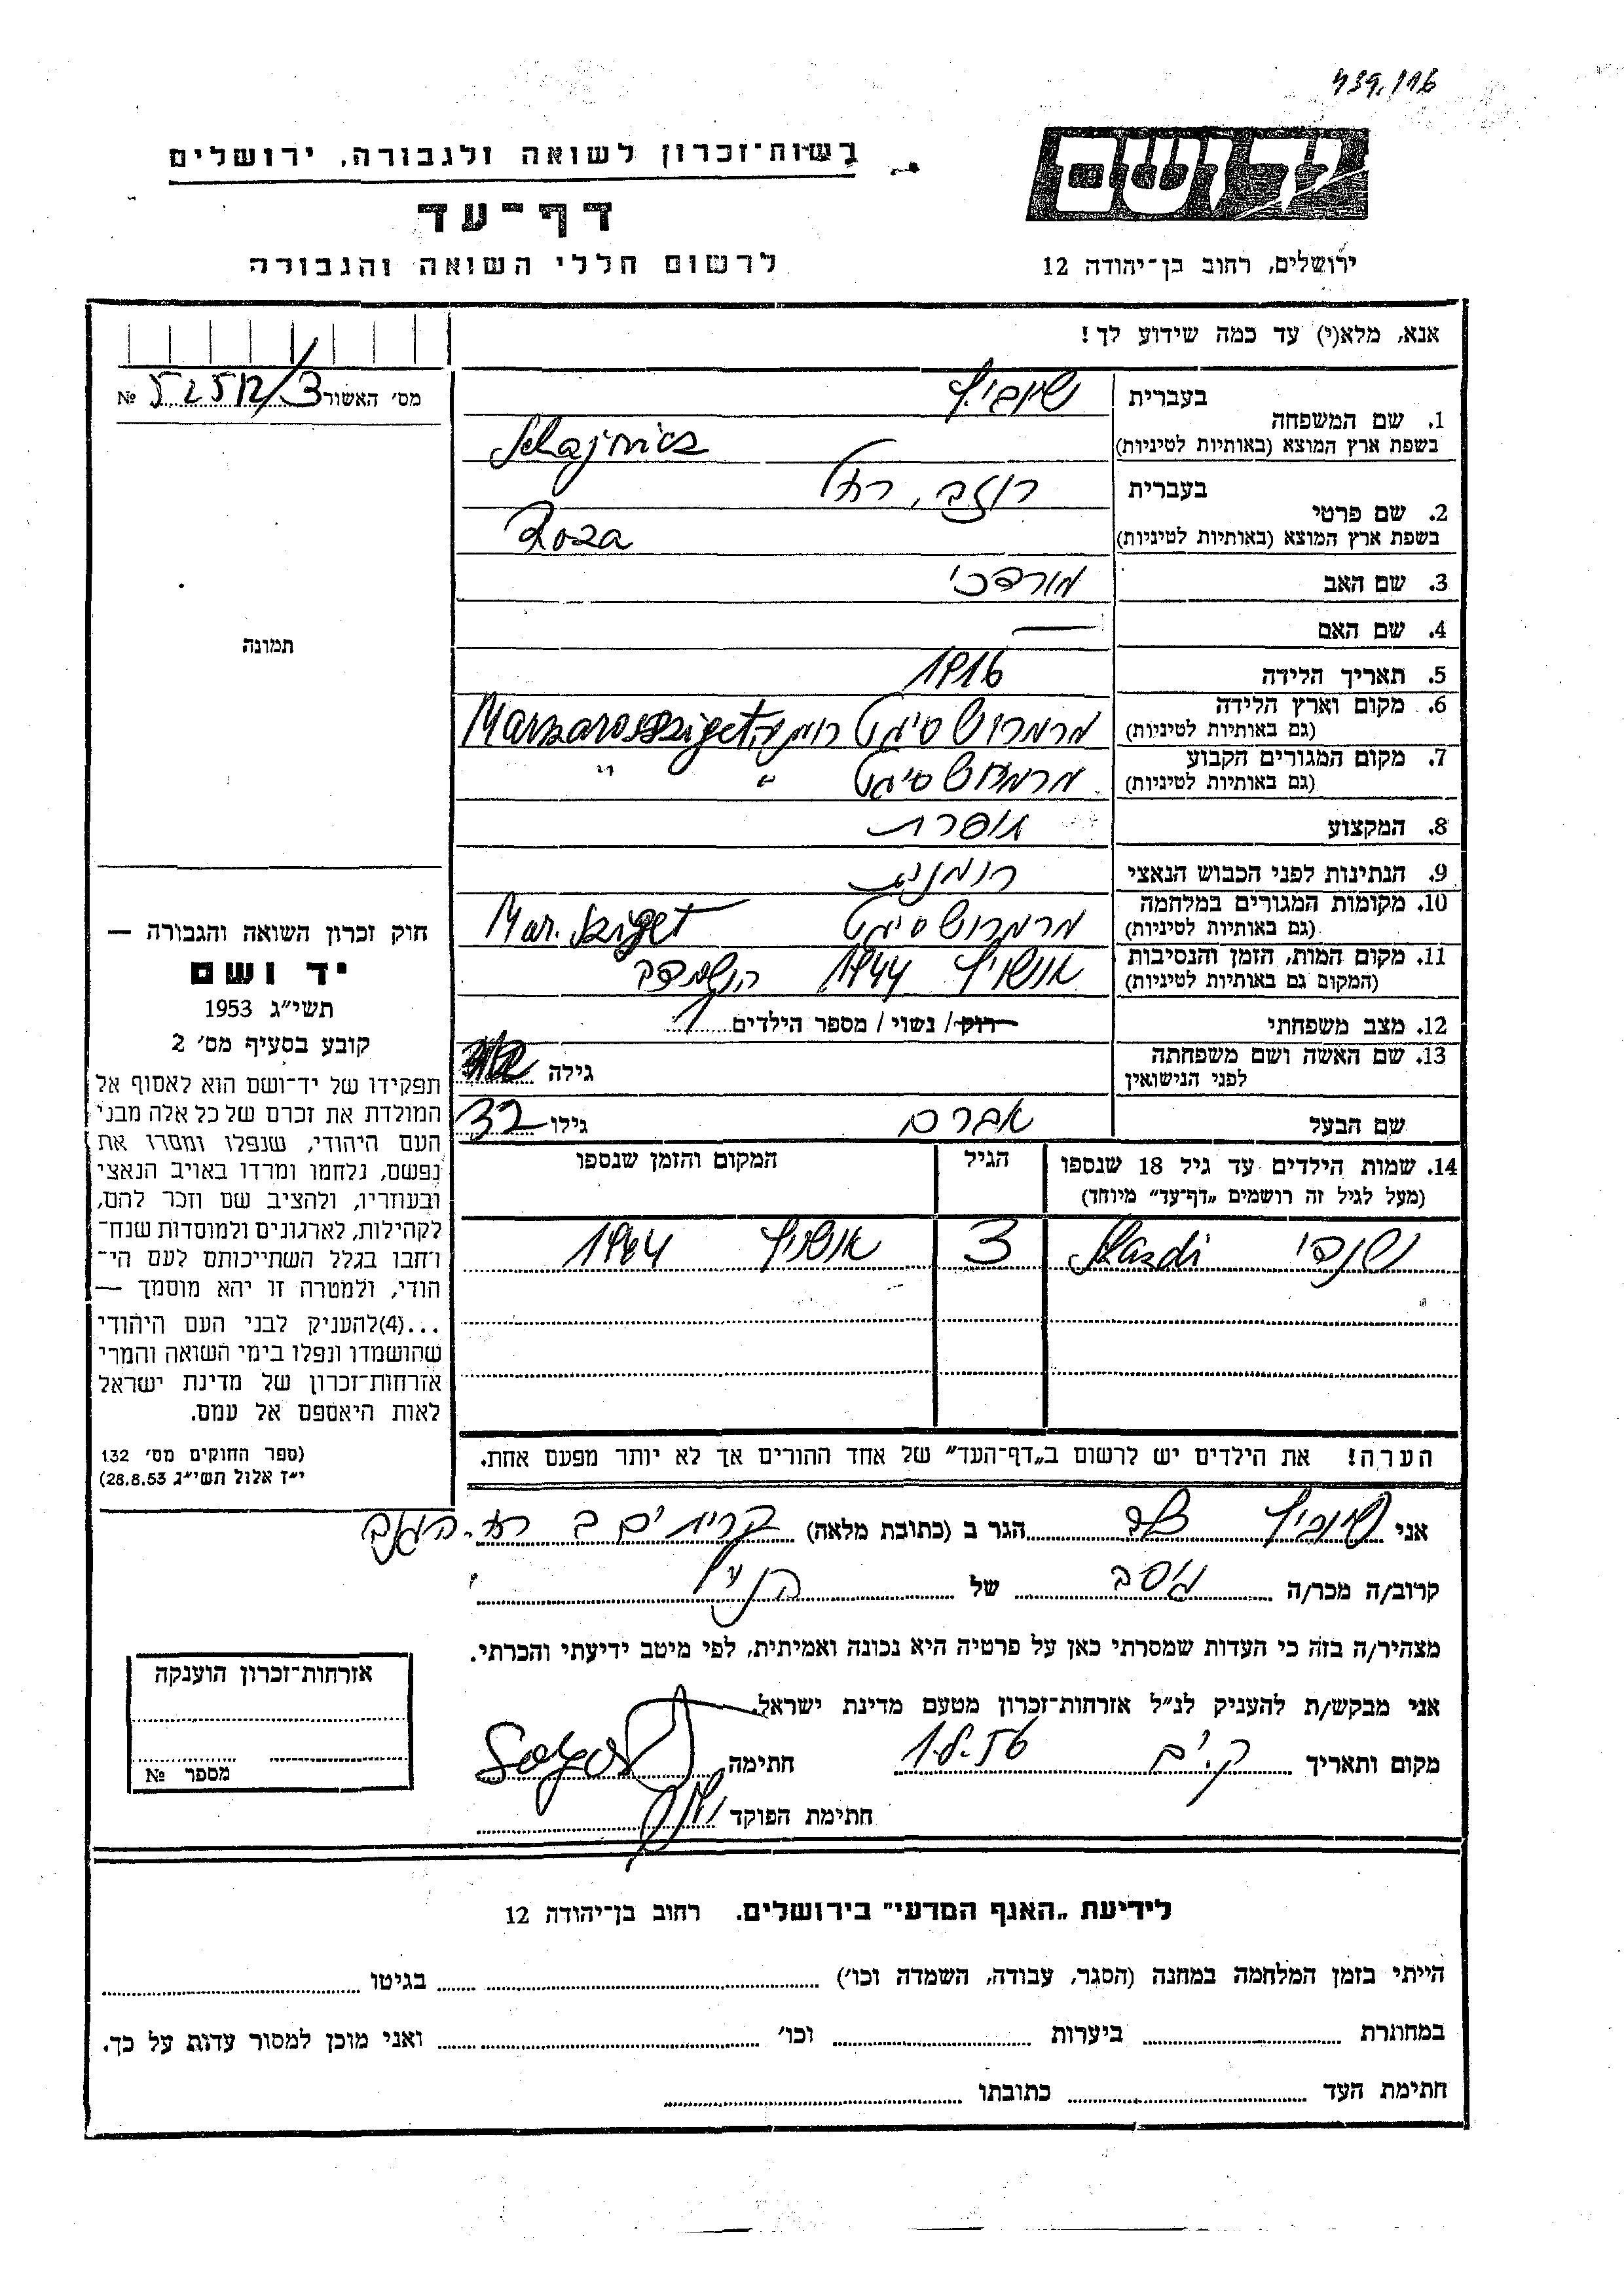 439/116
יד ושם
רשות־זכרון לשואה ולגבורה, ירושלים
דף־עד
לרשום חללי השואה והגבורה
ירושלים, רחוב בן־יהודה 12
אנא, מלא(י) עד כמה שידוע לך!
מס׳ האשור 52512/3 №
1. שם המשפחה
בעברית
בשפת ארץ המוצא (באותיות לטיניות)
2. שם פרטי
בעברית רוזה, רחל
בשפת ארץ המוצא (באותיות לטיניות) Roza
3. שם האב מורדכי
4. שם האם —
5. תאריך הלידה 1916
6. מקום וארץ הלידה מרמרוש סיגט רומניה Marmarossziget
(גם באותיות לטיניות)
7. מקום המגורים הקבוע מרמרוש סיגט " "
(גם באותיות לטיניות)
8. המקצוע תופרת
9. הנתינות לפני הכבוש הנאצי רומנית
10. מקומות המגורים במלחמה מרמרוש סיגט Mar. Sziget
(גם באותיות לטיניות)
11. מקום המות, הזמן והנסיבות אושויץ 1944 הושמדה
(המקום גם באותיות לטיניות)
12. מצב משפחתי רוק/ נשוי / מספר הילדים 1
13. שם האשה ושם משפחתה
לפני הנישואין
גילה
שם הבעל אברם גילו 32
14. שמות הילדים עד גיל 18 שנספו
(מעל לגיל זה רושמים „דף־עד” מיוחד)
הגיל
המקום והזמן שנספו
3 אושויץ 1944
הערה! את הילדים יש לרשום ב„דף־העד” של אחד ההורים אך לא יותר מפעם אחת.
תמונה
חוק זכרון השואה והגבורה —
יד ושם
תשי״ג 1953
קובע בסעיף מס׳ 2
תפקידו של יד־ושם הוא לאסוף אל
המולדת את זכרם של כל אלה מבני
העם היהודי, שנפלו ומסרו את
נפשם, נלחמו ומרדו באויב הנאצי
ובעוזריו, ולהציב שם וזכר להם,
לקהילות, לארגונים ולמוסדות שנח־
רבו בגלל השתייכותם לעם הי־
הודי, ולמטרה זו יהא מוסמך —
...(4)להעניק לבני העם היהודי
שהושמדו ונפלו בימי השואה והמרי
אזרחות־זכרון של מדינת ישראל
לאות היאספם אל עמם.
(ספר החוקים מס׳ 132
י״ז אלול תשי״ג 28.8.53)
אני הגר ב (כתובת מלאה) קרית ים ב
קרוב/ה מכר/ה גיסה של הנ״ל
מצהיר/ה בזה כי העדות שמסרתי כאן על פרטיה היא נכונה ואמיתית, לפי מיטב ידיעתי והכרתי.
אני מבקש/ת להעניק לנ״ל אזרחות־זכרון מטעם מדינת ישראל.
מקום ותאריך ק. ים חתימה
חתימת הפוקד
אזרחות־זכרון הוענקה
מספר №
לידיעת „האגף המדעי” בירושלים. רחוב בן־יהודה 12
הייתי בזמן המלחמה במחנה (הסגר, עבודה, השמדה וכו׳) בגיטו
במחתרת ביערות וכו׳ ואני מוכן למסור עדות על כך.
חתימת העד כתובתו